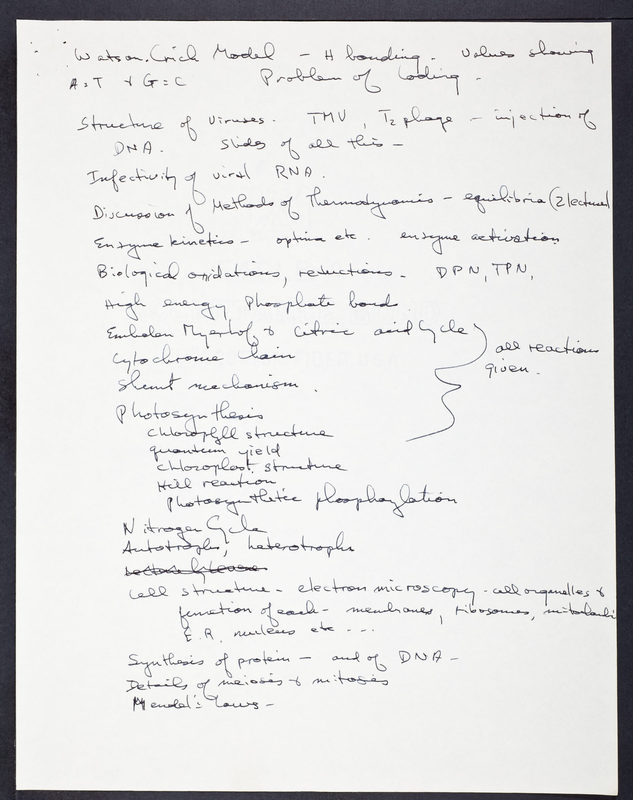 Watson-Crick Model - H bonding. Values showing
A=T & G=C Problem of Coding.
Structure of Viruses. TMV, T2 phage - injection of
DNA. Slides of all this -
Infectivity of viral RNA.
Discussion of Methods of Thermodynamics - equilibria (2 lectures)
Enzyme kinetics - optima etc. enzyme activation
Biological oxidations, reductions. DPN, TPN,
High energy Phosphate bond
Embden Myerhof & Citric acid Cycle
Cytochrome chain
all reactions
given.
Shunt mechanism.
Photosynthesis
chlorophyll structure
quantum yield
chloroplast structure
Hill reaction
Photosynthetic phosphorylation
Nitrogen Cycle
Autotrophs, heterotrophs
Cell structure - electron microscopy - cell organelles &
function of each - membranes, ribosomes, mitochondri
E.R. nucleus etc ...
Synthesis of protein - and of DNA -
Details of meiosis & mitosis
Mendel's Laws -